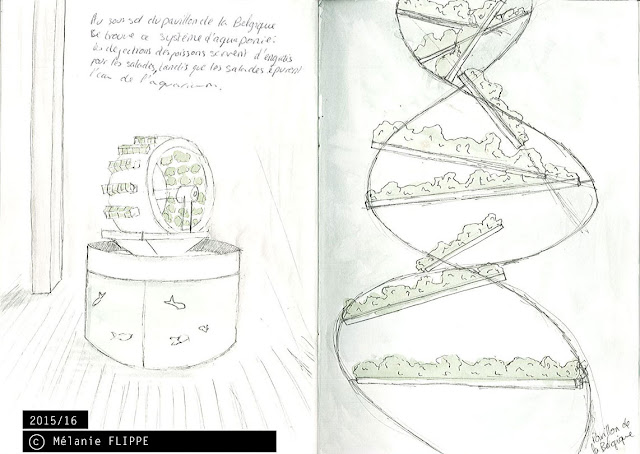 Au sous sol du pavillon de la Belgique
se trouve ce système d'aquaponie:
les déjections des poissons servent d'engrais
pour les salades, tandis que les salades épurent
l'eau de l'aquarium.
Pavillon de
la Belgique
2015/16
© Mélanie FLIPPE